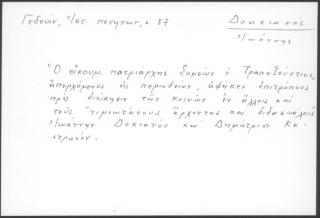 Γεδεών, Χ/στ. πενήτων, σ 87
Δοκειανός
Ἰωάννης
Ὁ οἰκουμ. πατριάρχης Συμεών ὁ Τραπεζούντιος,
ἀπερχόμενος εἰς περιοδείαν, ἀφῆκεν ἐπιτρόπους
πρός διοίκησιν τῶν κοινῶν ἐν ἄλλοις καί
τούς "τιμιωτάτους ἄρχοντας καί διδασκάλους"
Ἰωάννην Δοκιανόν καί Δημήτριον Κα-
στρηνόν.